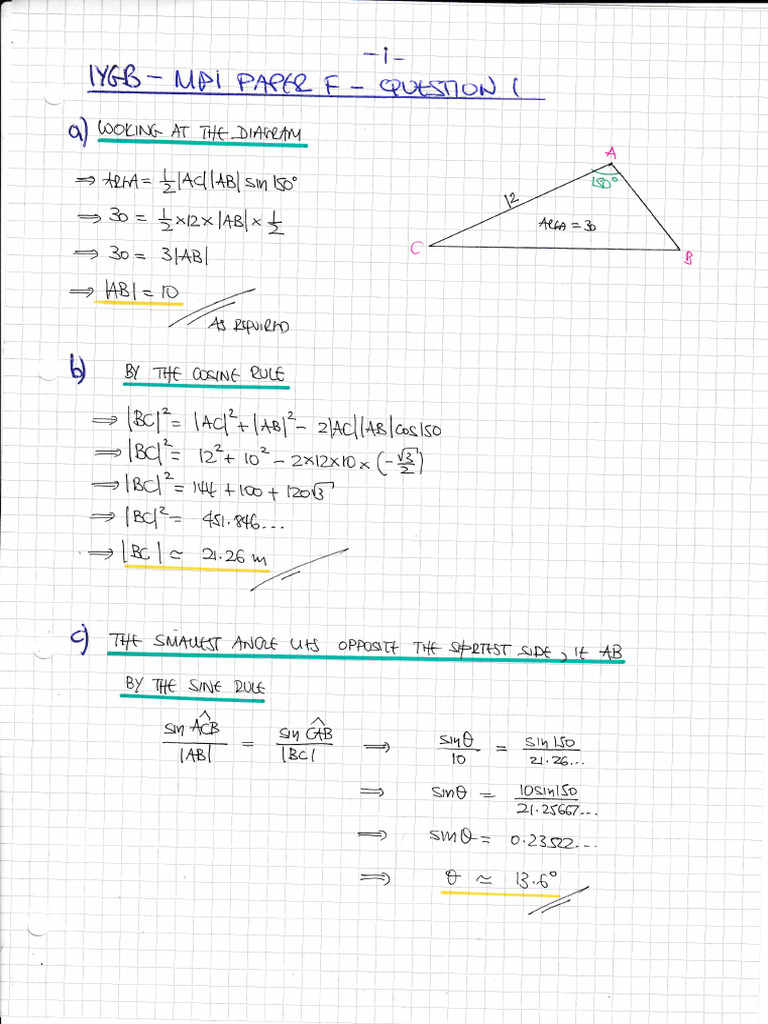 -1-
IYGB - MP1 PAPER F - QUESTION 1
a) LOOKING AT THE DIAGRAM
⇒ AREA = 1/2 |AC||AB| sin150°
⇒ 30 = 1/2 × 12 × |AB| × 1/2
⇒ 30 = 3|AB|
⇒ |AB| = 10
AS REQUIRED
A
150°
12
AREA = 30
C
B
b) BY THE COSINE RULE
⇒ |BC|² = |AC|² + |AB|² - 2|AC||AB|cos150
⇒ |BC|² = 12² + 10² - 2×12×10 × (-√3/2)
⇒ |BC|² = 144 + 100 + 120√3
⇒ |BC|² = 451.846...
⇒ |BC| ≈ 21.26 m
c) THE SMALLEST ANGLE LIES OPPOSITE THE SHORTEST SIDE, IE AB
BY THE SINE RULE
sin AĈB / |AB| = sin CÂB / |BC| ⇒ sinθ / 10 = sin150 / 21.26...
⇒ sinθ = 10sin150 / 21.25667...
⇒ sinθ = 0.23522...
⇒ θ ≈ 13.6°